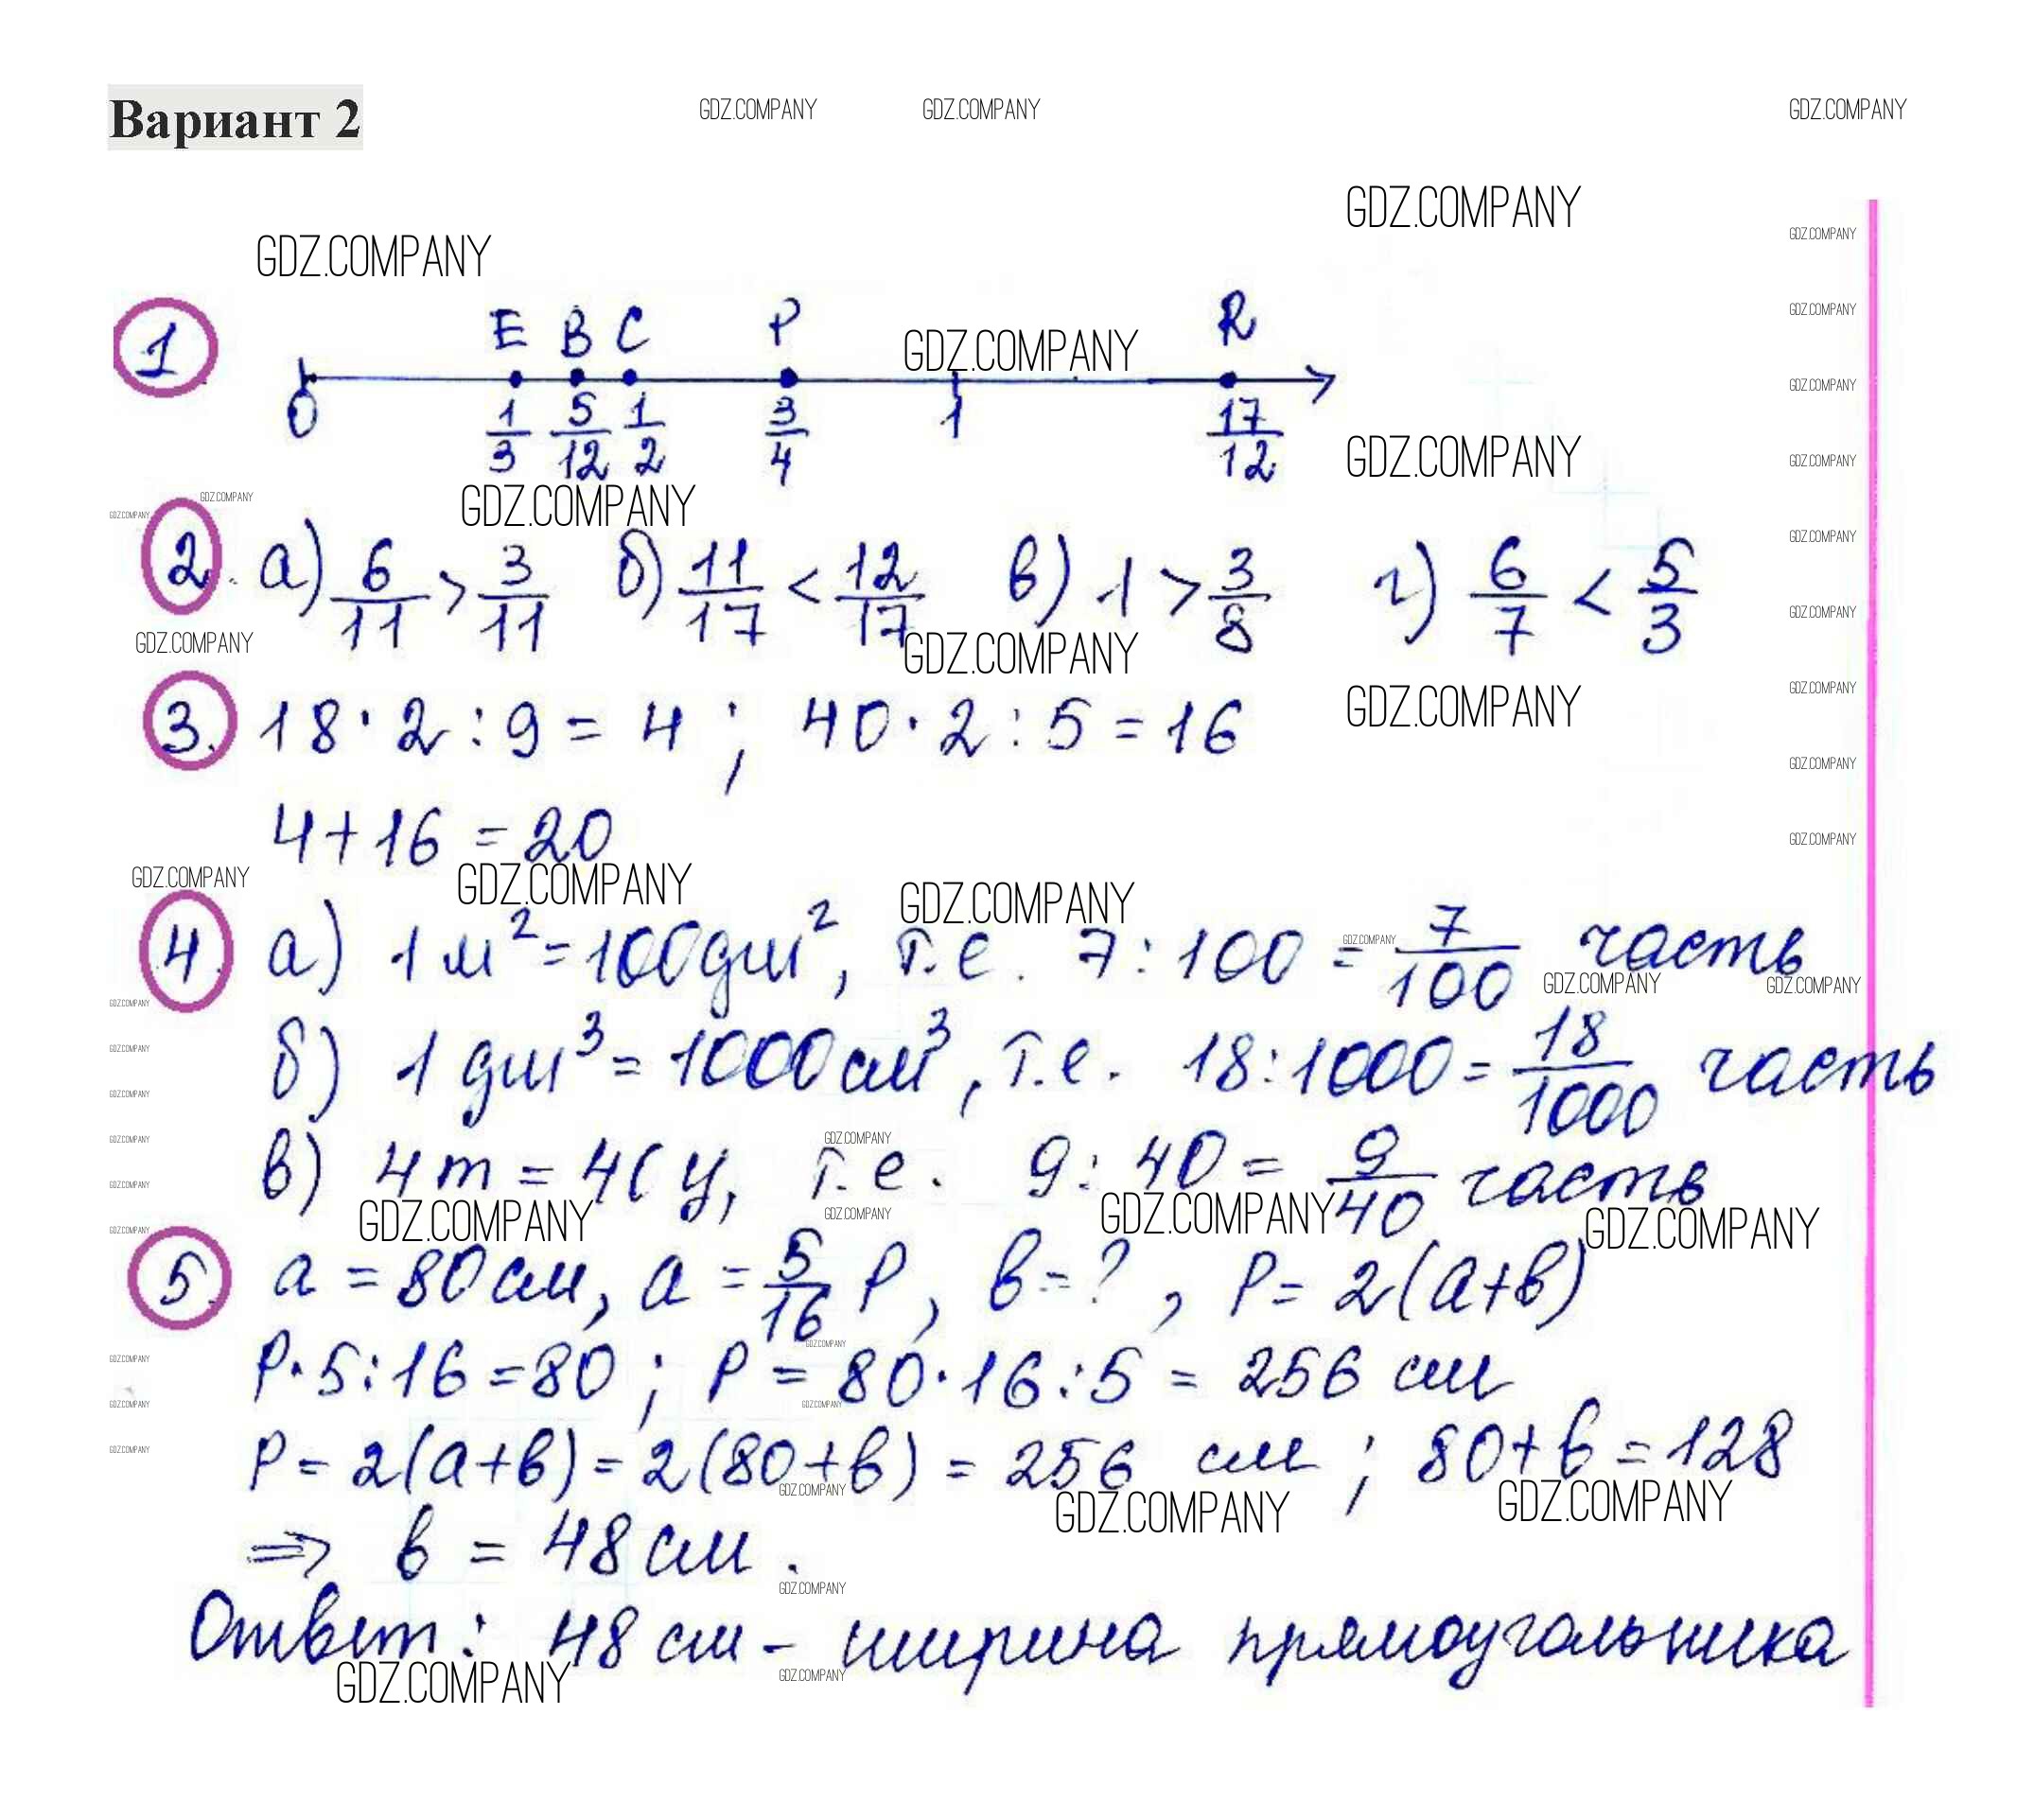 Вариант 2
GDZ.COMPANY GDZ.COMPANY GDZ.COMPANY
GDZ.COMPANY
GDZ.COMPANY
1 E B C P R
0 1/3 5/12 1/2 3/4 1 17/12
2. а) 6/11 > 3/11 б) 11/17 < 12/17 в) 1 > 3/8 г) 6/7 < 5/3
3. 18 · 2 : 9 = 4 ; 40 · 2 : 5 = 16
4 + 16 = 20
4. а) 1 м² = 100 дм², т.е. 7 : 100 = 7/100 часть
б) 1 дм³ = 1000 см³, т.е. 18 : 1000 = 18/1000 часть
в) 4 т = 40 ц, т.е. 9 : 40 = 9/40 часть
5. a = 80 см, a = 5/16 P, в = ?, P = 2(a+в)
P · 5 : 16 = 80 ; P = 80 · 16 : 5 = 256 см
P = 2(a+в) = 2(80+в) = 256 см ; 80+в = 128
⇒ в = 48 см.
Ответ: 48 см - ширина прямоугольника
GDZ.COMPANY